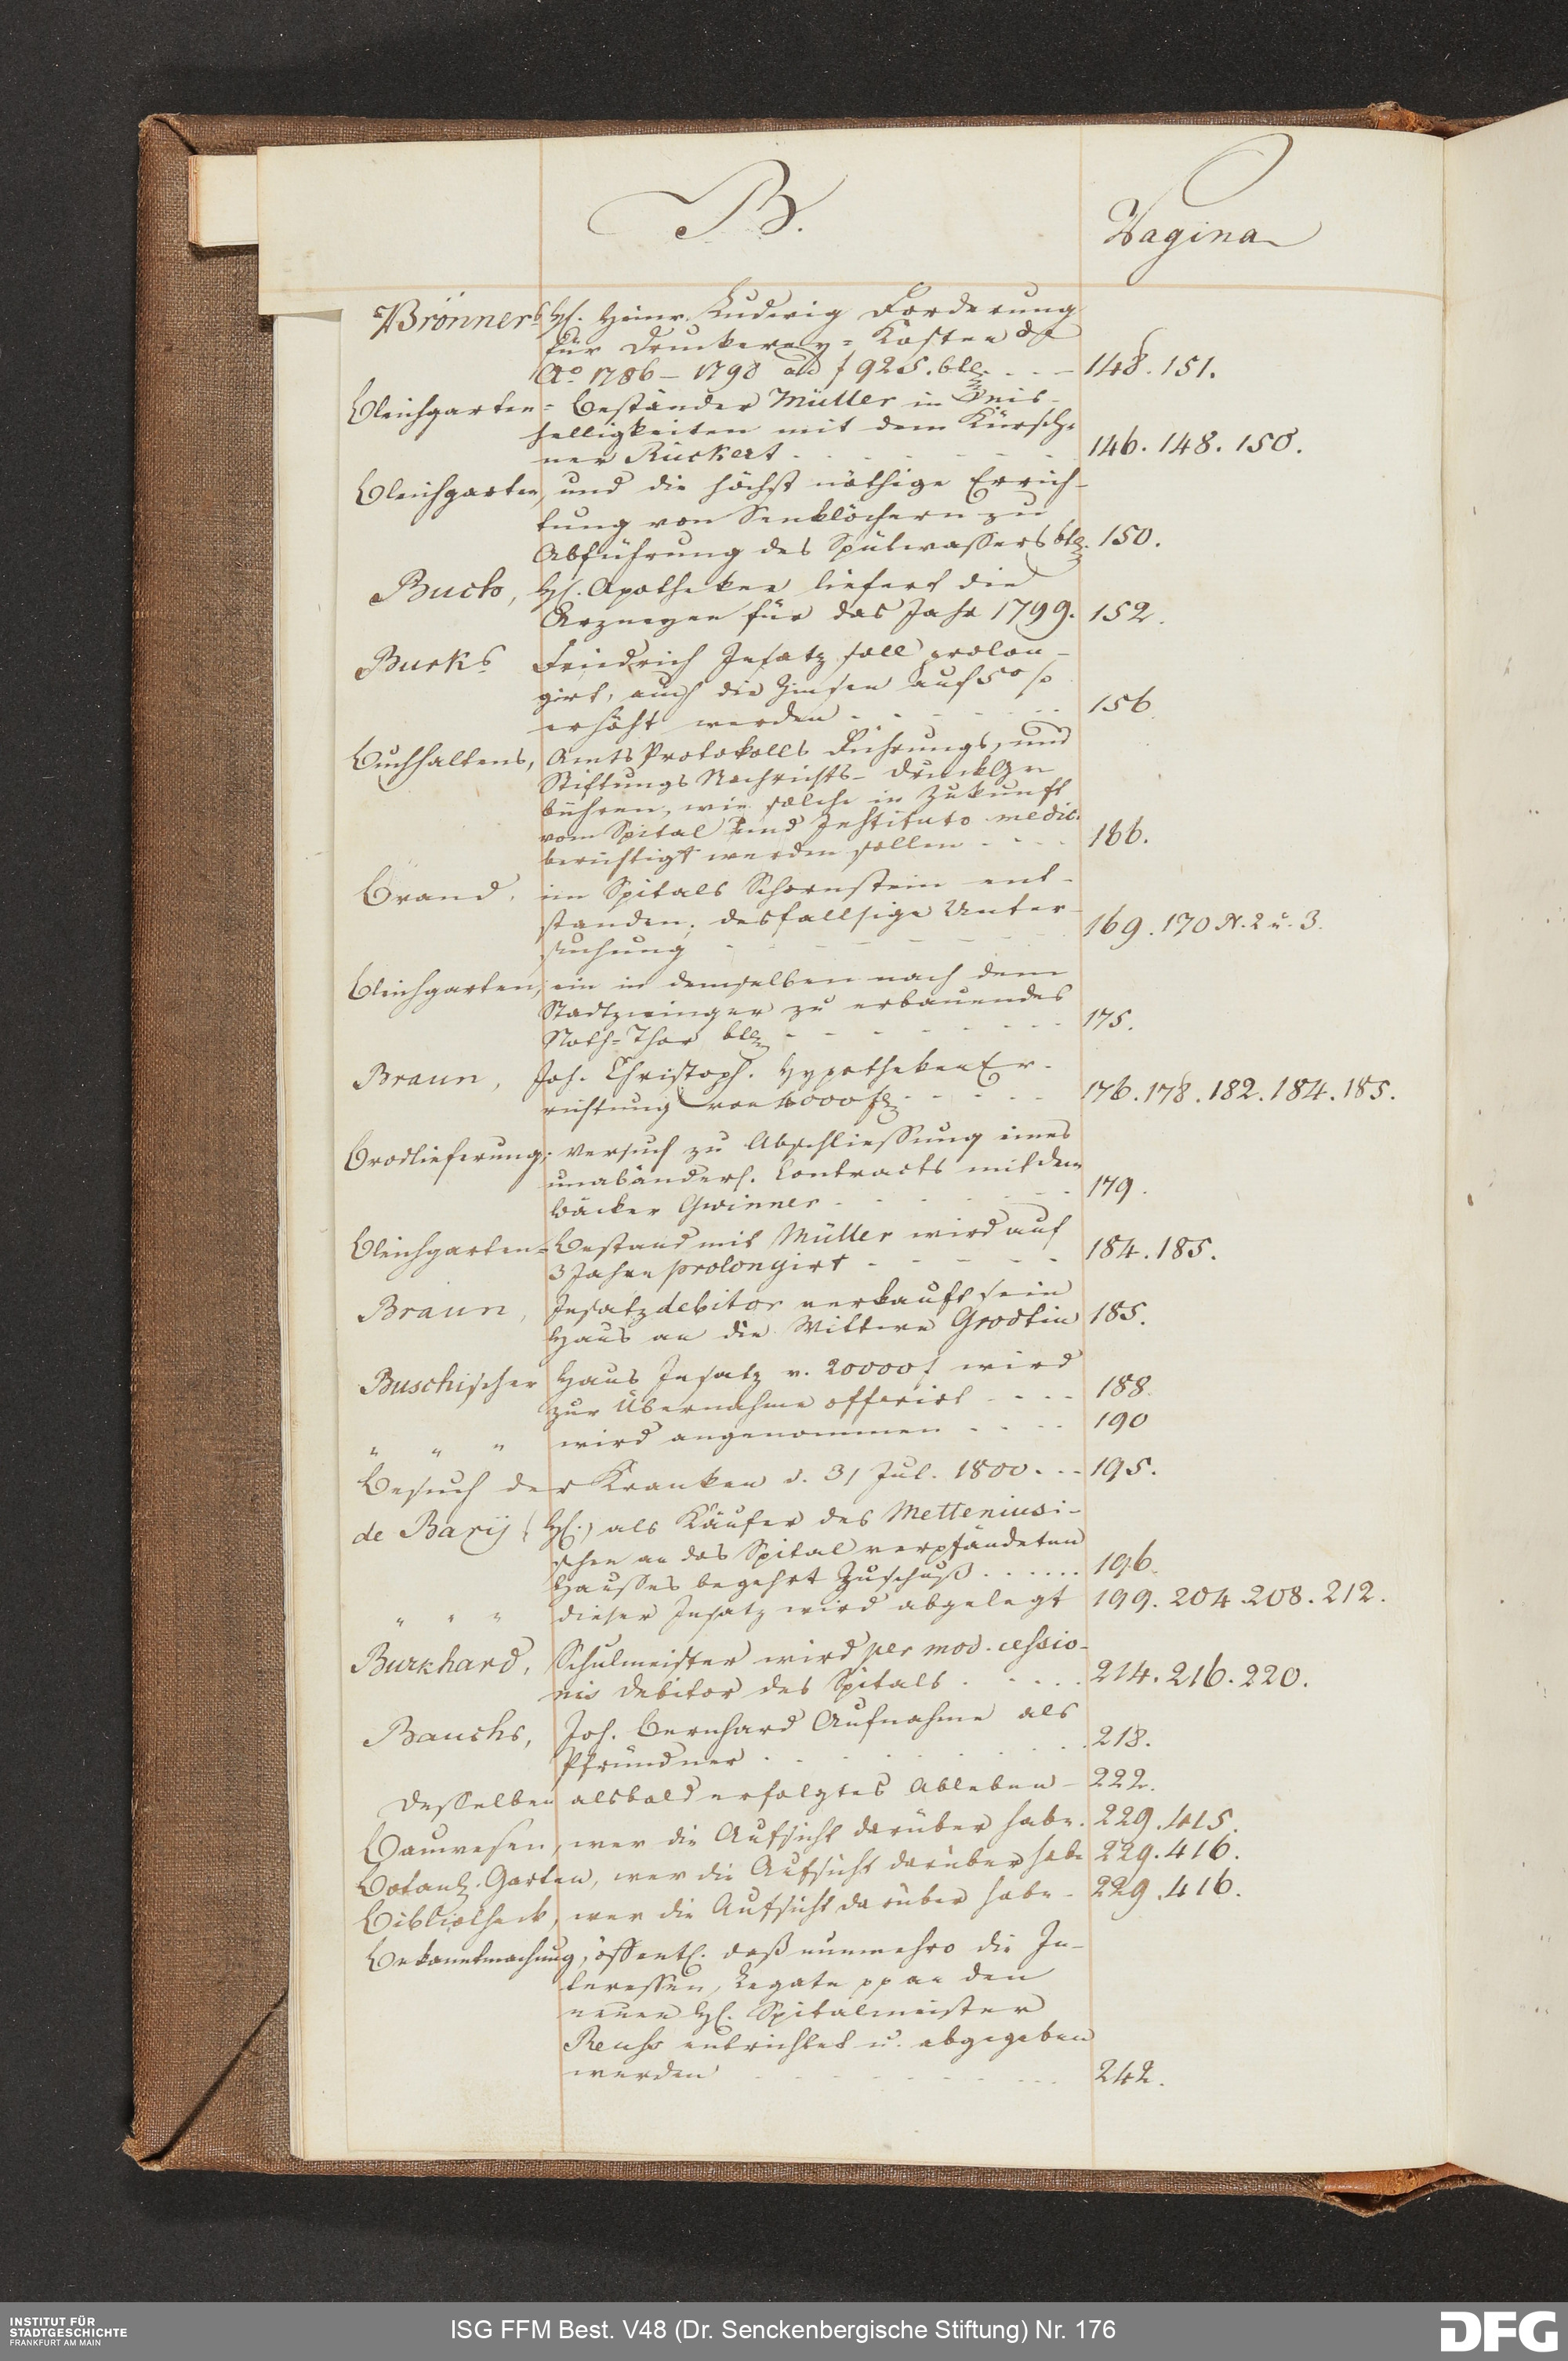 B.
Pagina
Brönners H. Heinr. Ludwig Forderung
für Druckerey-Kosten de
Ao. 1786 – 1798 ad f 925. btr. 148. 151.
Bleichgarten-Beständer Müller in Mis-
helligkeiten mit dem Kürsch-
ner Rückert 146. 148. 150.
Bleichgarten, und die höchst nöthige Errich-
tung von Senklöchern zu
Abführung des Spülwassers btr. 150.
Buch, H. Apotheker liefert die
Arzneyen für das Jahr 1799. 152.
Burks Friedrich Insatz soll prolon-
girt, auch die Zinsen auf 5 %
erhöht werden 156
Buchhaltens, Amts Protokolls Führungs, und
Stiftungs Nachrichts-Druck Ge
bühren, wie solche in Zukunft
vom Spital und Instituto medic.
berichtigt werden sollen 166.
Brand, im Spitals Schornstein ent-
standen, desfallsige Unter-
suchung 169. 170 N. 2 u. 3.
Bleichgarten, ein in demselben nach dem
Stadtzwinger zu erbauendes
Noth-Thor btr. 175.
Braun, Joh. Christoph. Hypotheken Er-
richtung von 4000 f 176. 178. 182. 184. 185.
Brodlieferung; Versuch zu Abschliessung eines
unabänderl. Contracts mit dem
Bäcker Gwinner 179.
Bleichgarten-Bestand mit Müller wird auf
3 Jahre prolongirt 184. 185.
Braun, Insatzdebitor verkauft sein
Haus an die Wittwe Grodtin 185.
Buschischer Haus Insatz v. 20000 f wird
zur Übernahme offerirt 188.
" " " wird angenommen 190
Besuch der Kranken d. 31 Jul. 1800. 195.
de Barij (H.) als Käufer des Metteniusi-
schen an das Spital verpfändeten
Hausses begehrt Zuschuß 196.
" " " dieser Insatz wird abgelegt 199. 204. 208. 212.
Burkhard, Schulmeister wird per mod. cessio-
nis Debitor des Spitals 214. 216. 220.
Bauchs, Joh. Bernhard Aufnahme als
Pfründner 218.
Desselben alsbald erfolgtes Ableben – 222.
Bauwesen, wer die Aufsicht darüber habe. 229. 415.
Botan. Garten, wer die Aufsicht darüber habe 229. 416.
Bibliotheck, wer die Aufsicht darüber habe – 229. 416.
Bekanntmachung, öffentl. daß nunmehro die In-
teressen, Legate pp an den
neuen H. Spitalmeister
Reuhs entrichtet u. abgegeben
werden 242.
INSTITUT FÜR
STADTGESCHICHTE
FRANKFURT AM MAIN
ISG FFM Best. V48 (Dr. Senckenbergische Stiftung) Nr. 176
DFG